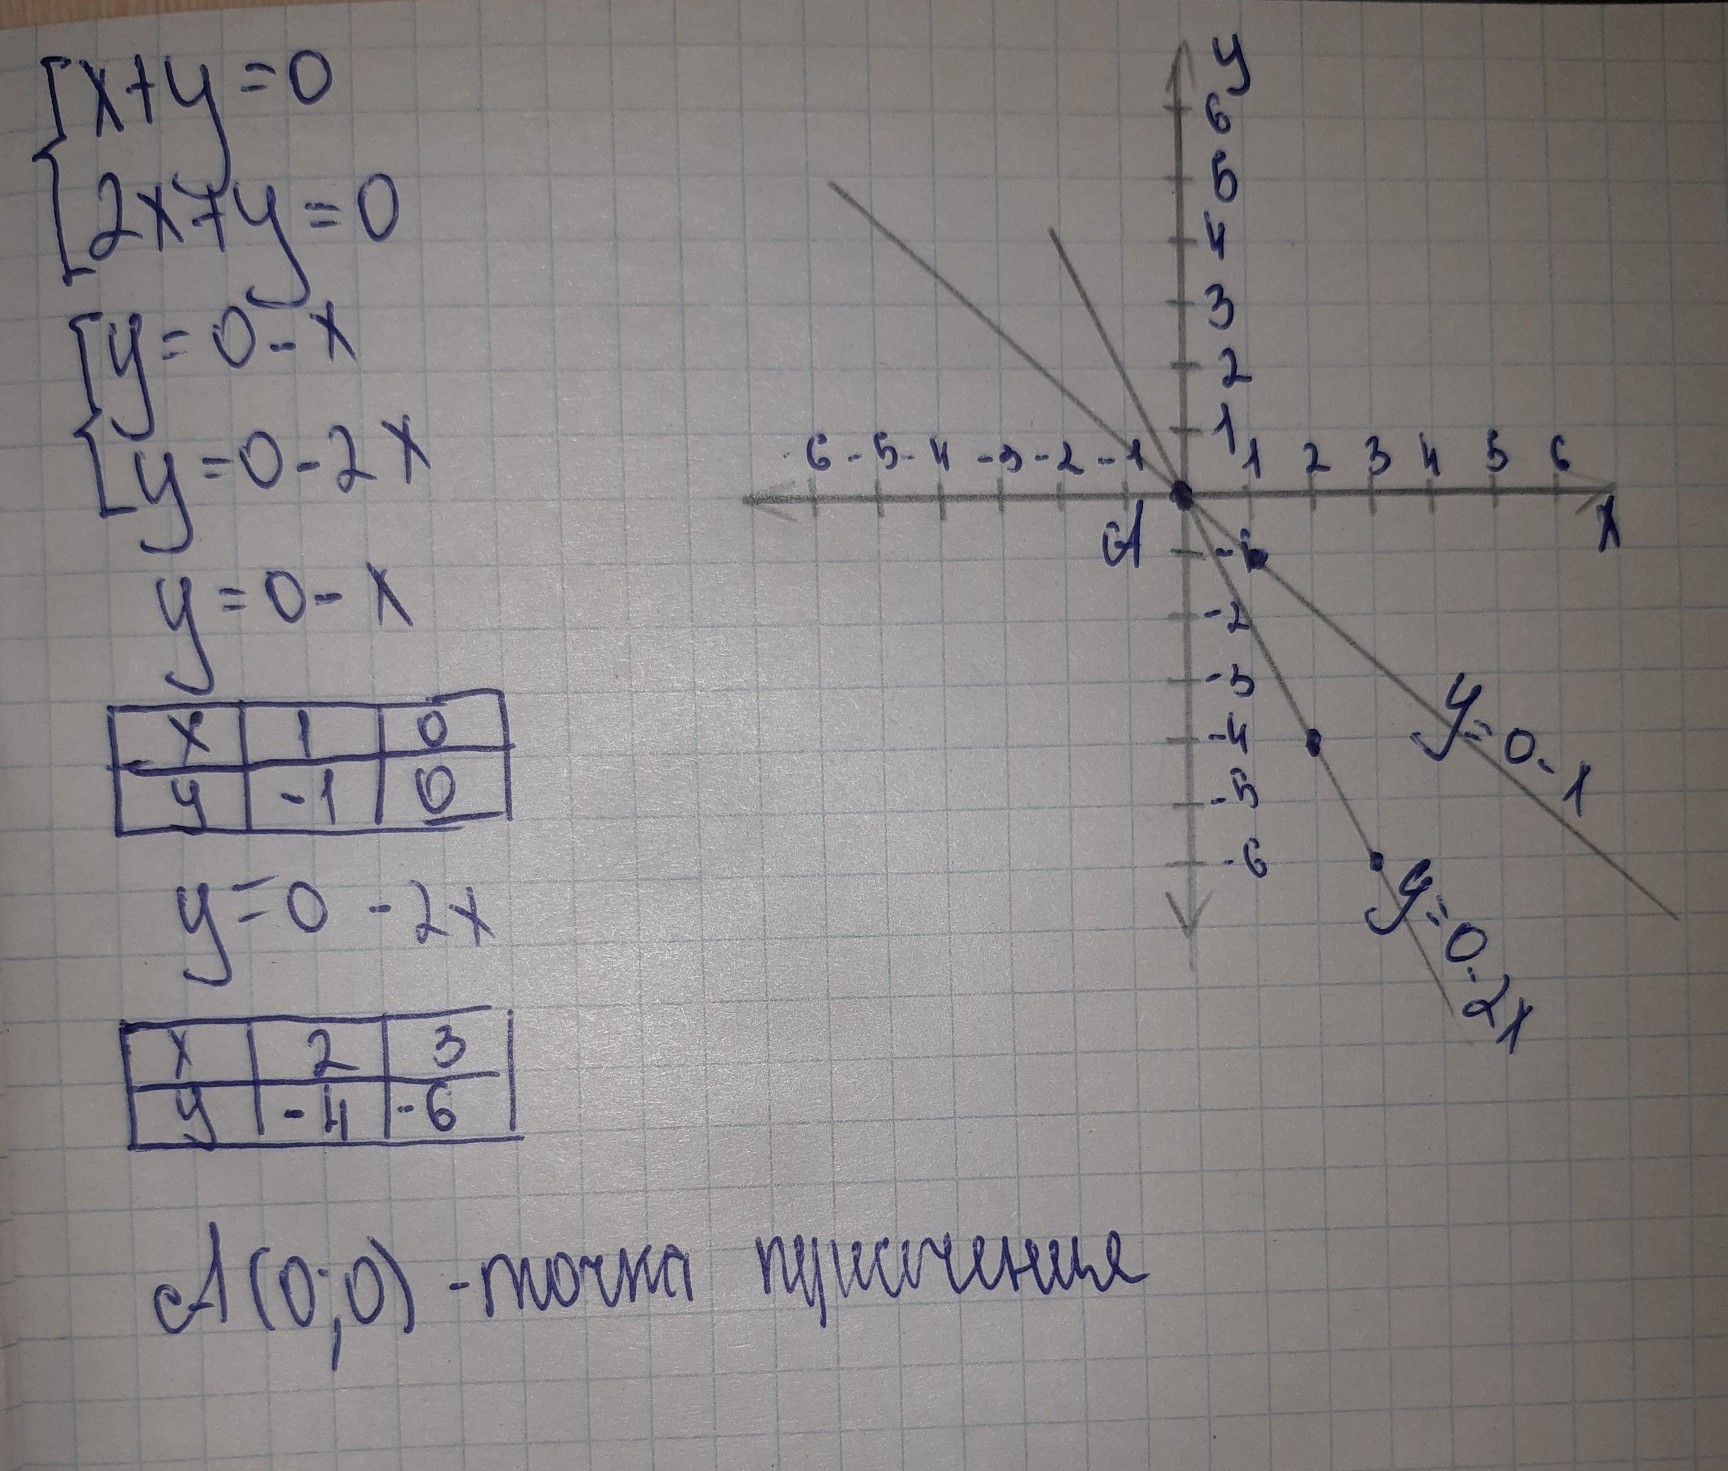 x+y=0
2x+y=0
y=0-x
y=0-2x
y=0-x
x 1 0
y -1 0
y=0-2x
x 2 3
y -4 -6
A(0;0) -точка
y
6
5
4
3
2
1
-6 -5 -4 -3 -2 -1 1 2 3 4 5 6
x
A
-1
-2
-3
-4
-5
-6
y=0-1
y=0-2x